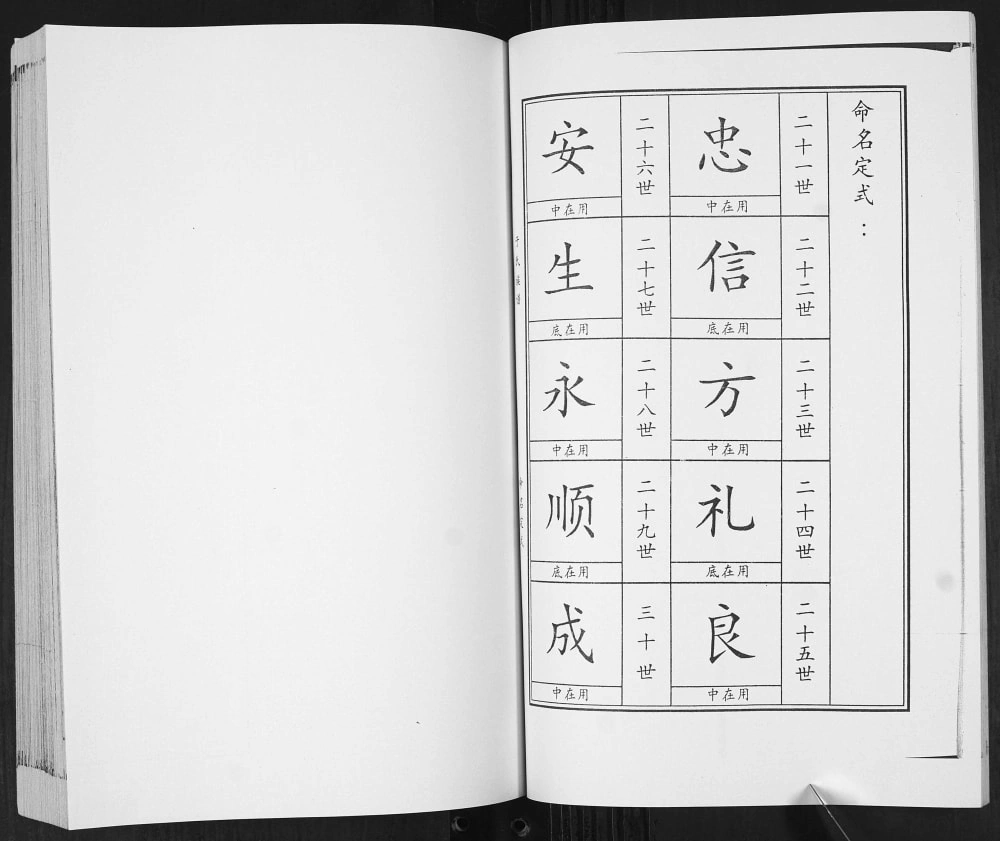 命名定式：
二十一世
忠
中在用
二十二世
信
底在用
二十三世
方
中在用
二十四世
礼
底在用
二十五世
良
中在用
二十六世
安
中在用
二十七世
生
底在用
二十八世
永
中在用
二十九世
顺
底在用
三十世
成
中在用